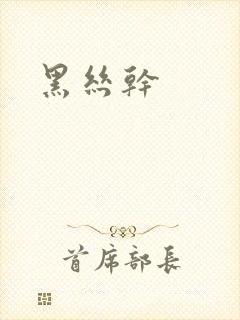 黑絲幹
首席部長